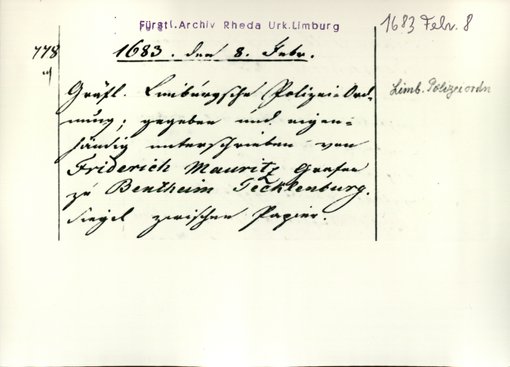 Fürstl. Archiv Rheda Urk. Limburg
1683 Febr. 8
778
1683. den 8. Febr.
Gräfl. Limburgsche Polizei=Ord=
Limb. Polizeiordn
nung; gegeben und eigen=
händig unterschrieben von
Friderich Mauritz Grafen
zu Bentheim Tecklenburg.
Siegel zwischen Papier.